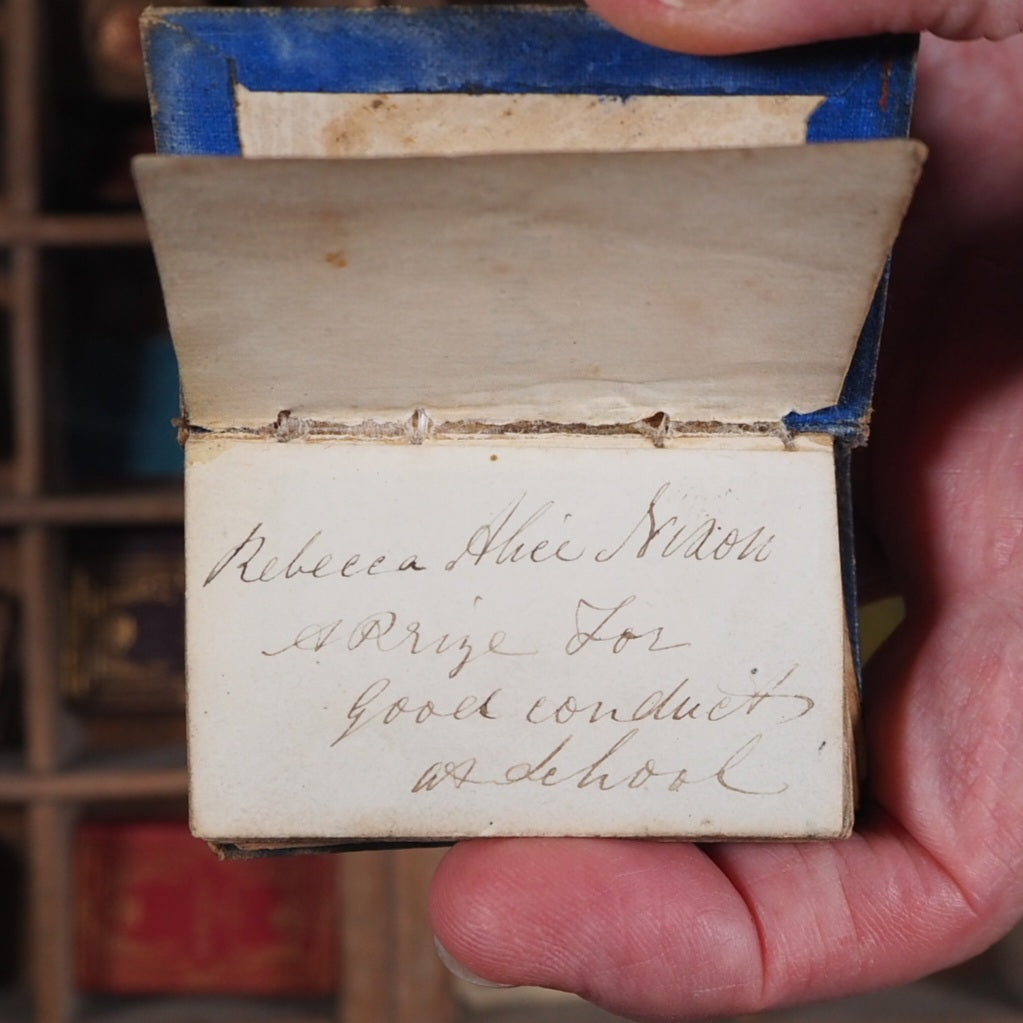 Rebecca Alice Nixon
A Prize For
Good conduct
at School